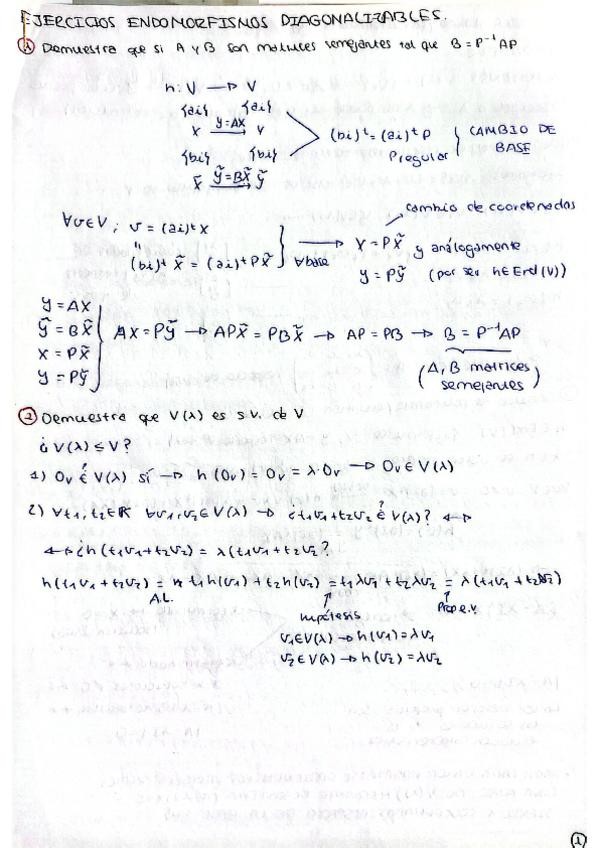 EJERCICIOS ENDOMORFISMOS DIAGONALIZABLES.
① Demuestra que si A y B son matrices semejantes tal que B = P⁻¹AP
h: V → V
{ai} {ai}
X y=AX Y
{bi} {bi}
X̃ Ỹ=BX̃ Ỹ
(bi)ᵗ = (ai)ᵗ P
P regular
CAMBIO DE BASE
∀v∈V, v = (ai)ᵗ X
"
(bi)ᵗ X̃ = (ai)ᵗ P X̃
∀base
cambio de coordenadas
X = PX̃ y análogamente
Y = PỸ (por ser h∈End(V))
Y = AX
Ỹ = BX̃
X = PX̃
Y = PỸ
AX = PỸ → APX̃ = PBX̃ → AP = PB → B = P⁻¹AP
(A, B matrices semejantes)
② Demuestra que V(λ) es s.v. de V
¿V(λ) ≤ V?
1) 0v ∈? V(λ) sí → h(0v) = 0v = λ·0v → 0v ∈ V(λ)
2) ∀t1, t2∈ℝ ∀v1, v2∈V(λ) → ¿t1v1+t2v2 ∈? V(λ)? ↔
↔ ¿h(t1v1+t2v2) = λ(t1v1+t2v2)?
h(t1v1+t2v2) = t1h(v1)+t2h(v2) = t1λv1+t2λv2 = λ(t1v1+t2v2)
A.L.
hipótesis
Prop e.v
v1∈V(λ) → h(v1)=λv1
v2∈V(λ) → h(v2)=λv2
①